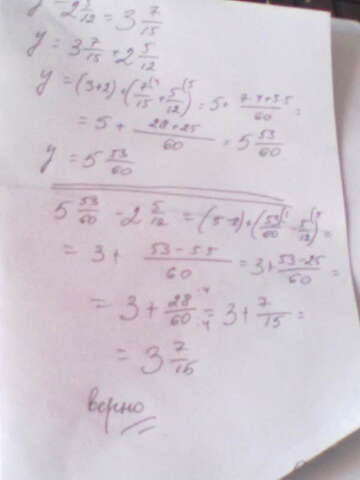 y - 2 5/12 = 3 7/15
y = 3 7/15 + 2 5/12
y = (3+2) + (7/15 + 5/12) = 5 + 7·4+5·5/60 =
= 5 + 28+25/60 = 5 53/60
y = 5 53/60
5 53/60 - 2 5/12 = (5-2) + (53/60 - 5/12) =
= 3 + 53-5·5/60 = 3 + 53-25/60 =
= 3 + 28/60 :4 :4 = 3 + 7/15 =
= 3 7/15
верно